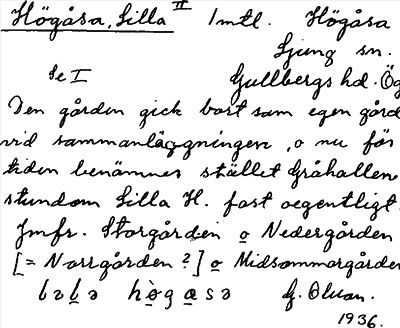 Högåsa, Lilla II 1 mtl. Högåsa
Ljung sn.
Se I Gullbergs hd. Ög
Den gården gick bort som egen gård
vid sammanläggningen, o nu för
tiden benämnes stället Gråhallen
stundom Lilla H. fast oegentligt.
Jmfr. Storgården o Nedergården
[= Norrgården?] o Midsommargården
hògæsə G. Olson.
1936.